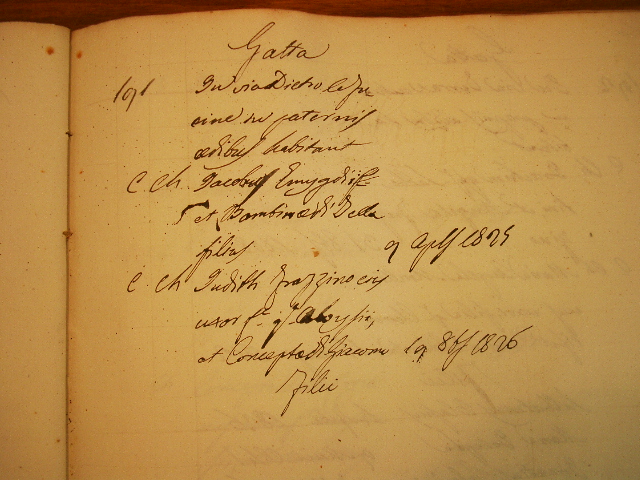 Gatta
191 In via Dietro le Fu
cine in paternis
ædibus habitant
C Ch Jacobus Emygdii f.
5 et Bambinæ di Deda
filius 9 Aplis 1825
C Ch Judith Frazzino eius
uxor f. q. Aloysii,
et Conceptæ di Giacomo 19 8bis 1826
Filii